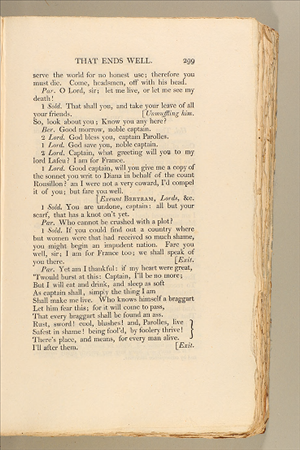 THAT ENDS WELL. 299
serve the world for no honest use; therefore you
must die. Come, headsmen, off with his head.
Par. O Lord, sir; let me live, or let me see my
death!
1 Sold. That shall you, and take your leave of all
your friends. [Unmuffling him.
So, look about you; Know you any here?
Ber. Good morrow, noble captain.
2 Lord. God bless you, captain Parolles.
1 Lord. God save you, noble captain.
2 Lord. Captain, what greeting will you to my
lord Lafeu? I am for France.
1 Lord. Good captain, will you give me a copy of
the sonnet you writ to Diana in behalf of the count
Rousillon? an I were not a very coward, I'd compel
it of you; but fare you well.
[Exeunt BERTRAM, Lords, &c.
1 Sold. You are undone, captain: all but your
scarf, that has a knot on't yet.
Par. Who cannot be crushed with a plot?
1 Sold. If you could find out a country where
but women were that had received so much shame,
you might begin an impudent nation. Fare you
well, sir; I am for France too; we shall speak of
you there. [Exit.
Par. Yet am I thankful: if my heart were great,
'Twould burst at this: Captain, I'll be no more;
But I will eat and drink, and sleep as soft
As captain shall, simply the thing I am
Shall make me live. Who knows himself a braggart
Let him fear this; for it will come to pass,
That every braggart shall be found an ass.
Rust, sword! cool, blushes! and, Parolles, live
Safest in shame! being fool'd, by foolery thrive!
There's place, and means, for every man alive.
I'll after them. [Exit.